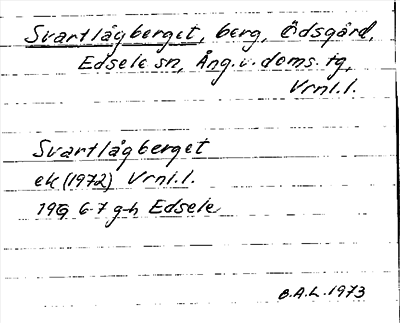 Svartlågberget, berg, Ödsgård,
Edsele sn, Ång. v. doms. tg,
Vrnl. l.
Svartlågberget
ek (1972) Vrnl. l.
19G 6-7 g-h Edsele
B.A.L. 1973